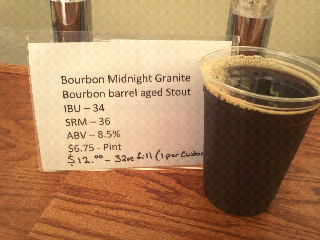 Bourbon Midnight Granite
Bourbon barrel aged Stout
IBU – 34
SRM – 36
ABV – 8.5%
$6.75 - Pint
$12.00 – 32oz fill (1 per Custom